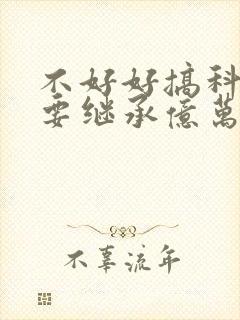 不好好搞科
要继承億萬
不辜流年